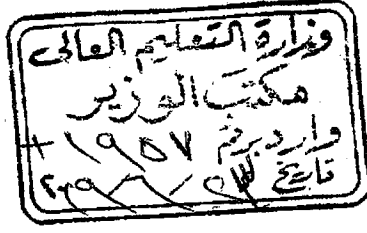 وزارة التعليم العالى
مكتب الوزير
وارد برقم ١٩٥٧
تاريخ